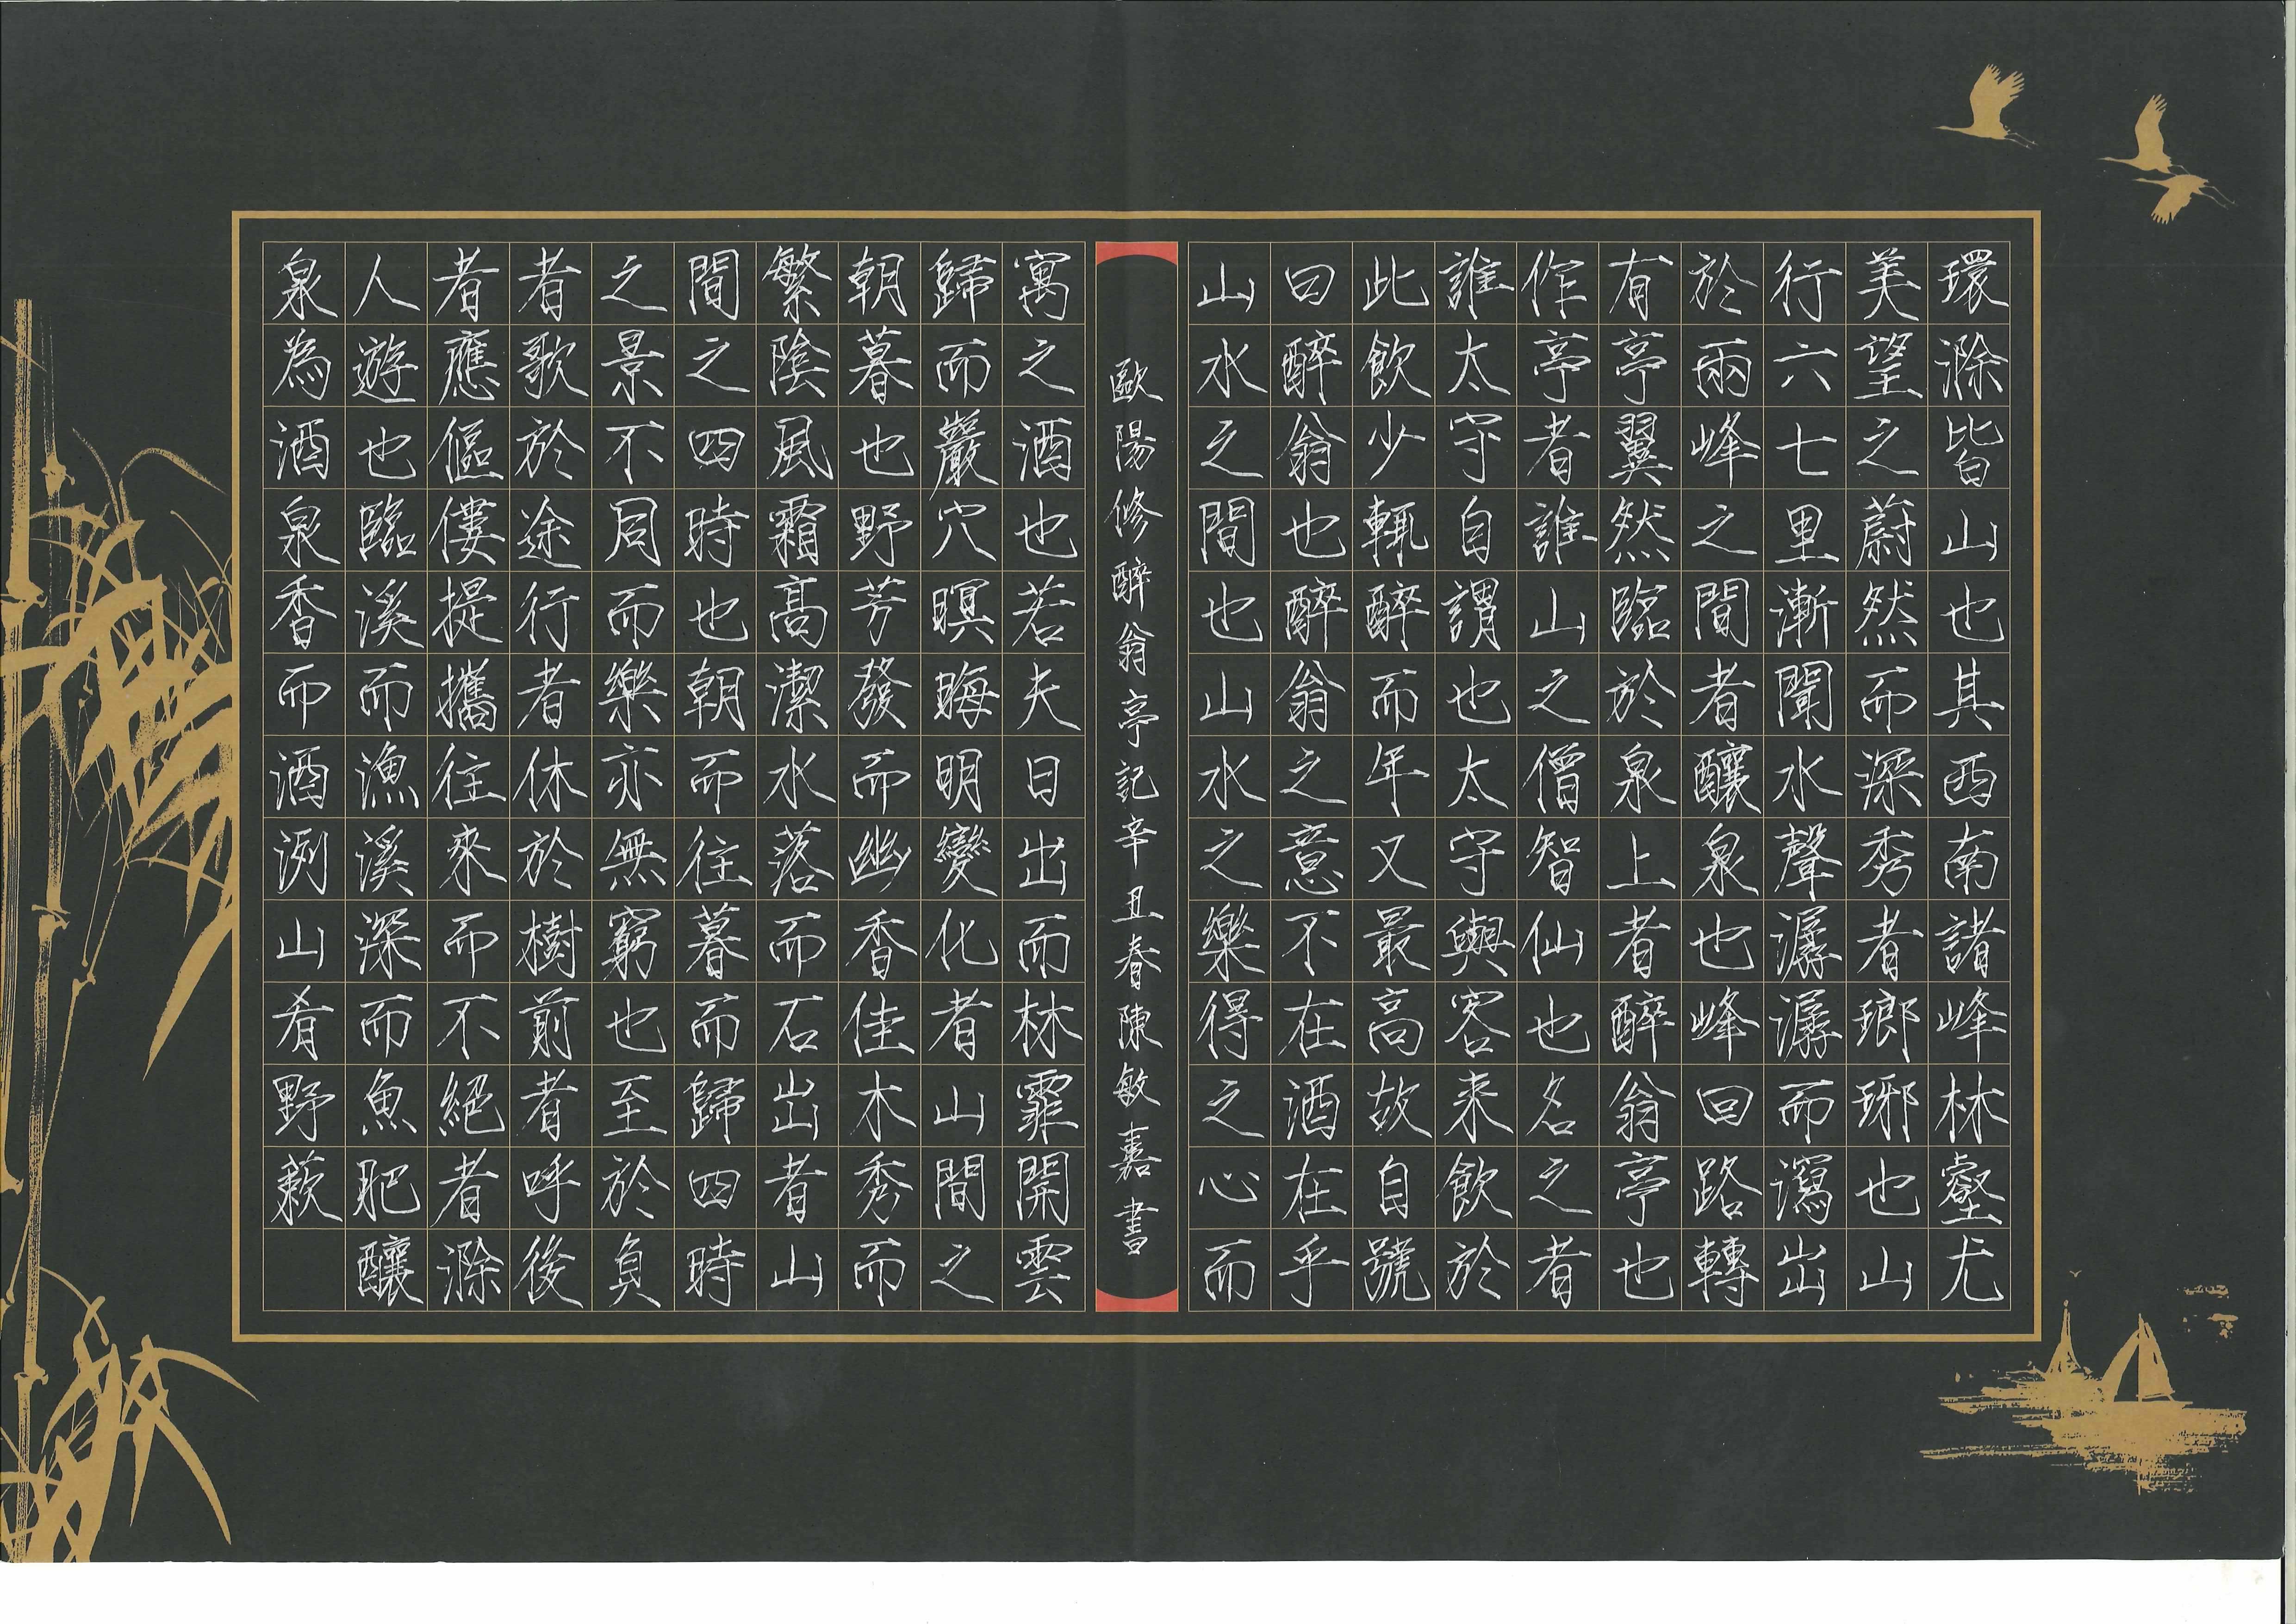 環滁皆山也其西南諸峰林壑尤
美望之蔚然而深秀者瑯琊也山
行六七里漸聞水聲潺潺而瀉出
於兩峰之間者釀泉也峰回路轉
有亭翼然臨於泉上者醉翁亭也
作亭者誰山之僧智仙也名之者
誰太守自謂也太守與客来飲於
此飲少輒醉而年又最高故自號
曰醉翁也醉翁之意不在酒在乎
山水之間也山水之樂得之心而
歐陽修醉翁亭記辛丑春陳敏嘉書
寓之酒也若夫日出而林霏開雲
歸而巖穴暝晦明變化者山間之
朝暮也野芳發而幽香佳木秀而
繁陰風霜高潔水落而石出者山
間之四時也朝而往暮而歸四時
之景不同而樂亦無窮也至於負
者歌於途行者休於樹前者呼後
者應傴僂提攜往來而不絕者滁
人遊也臨溪而漁溪深而魚肥釀
泉為酒泉香而酒洌山肴野蔌